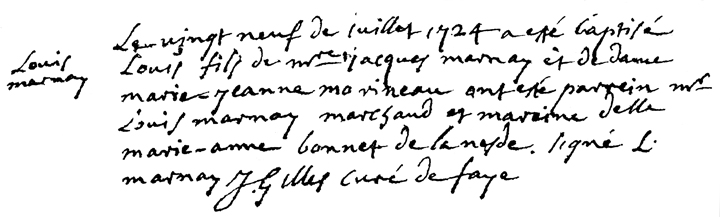 Louis
marnay
Le vingt neuf de juillet 1724 a esté baptisé
Louis fils de mre jacques marnay et de dame
marie-jeanne morineau ont esté parrein mr
Louis marnay marchand et mareine delle
marie-anne bonnet de la nesde. signé L.
marnay J. Gilles curé de faye